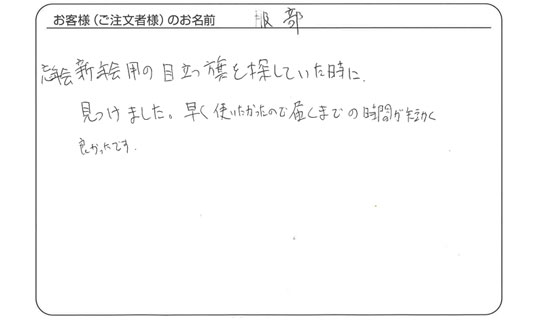 お客様（ご注文者様）のお名前 服部
忘年会新年会用の目立つ旗を探していた時に、
見つけました。早く使いたかったので届くまでの時間が短かく
良かったです.